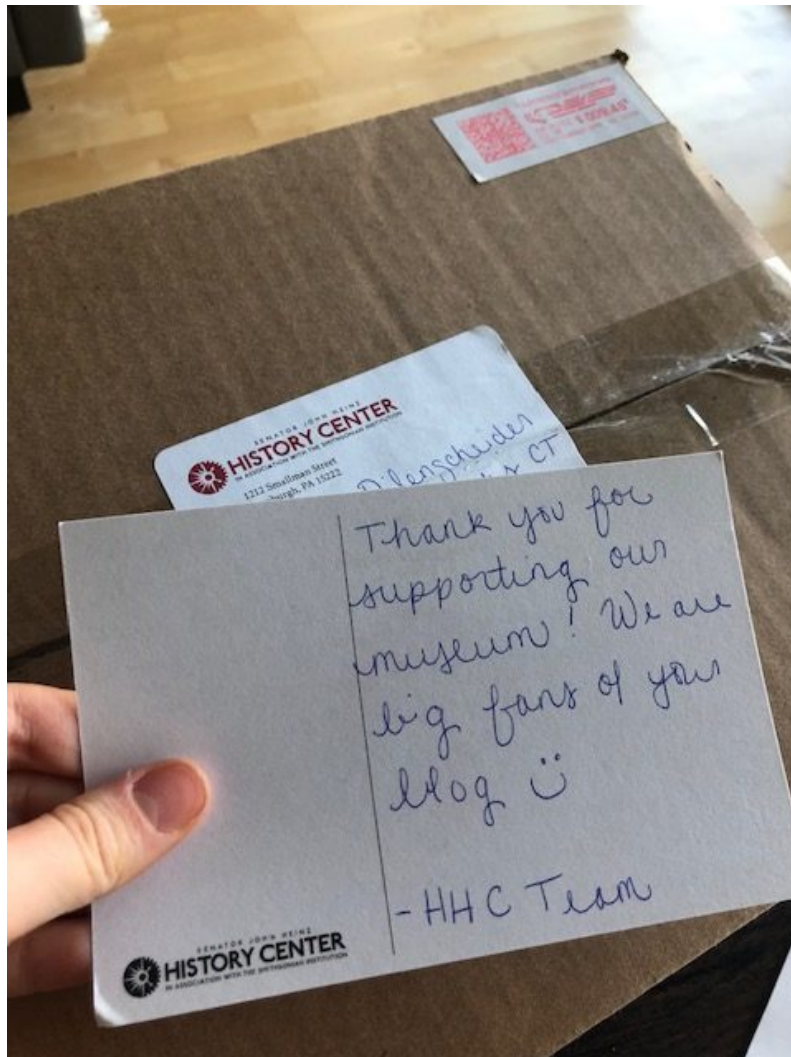 SENATOR JOHN HEINZ
HISTORY CENTER
IN ASSOCIATION WITH THE SMITHSONIAN INSTITUTION
1212 Smallman Street
burgh, PA 15222
Dilenschneider
CT
Thank you for
supporting our
museum! We are
big fans of your
blog
-HHC Team
SENATOR JOHN HEINZ
HISTORY CENTER
IN ASSOCIATION WITH THE SMITHSONIAN INSTITUTION